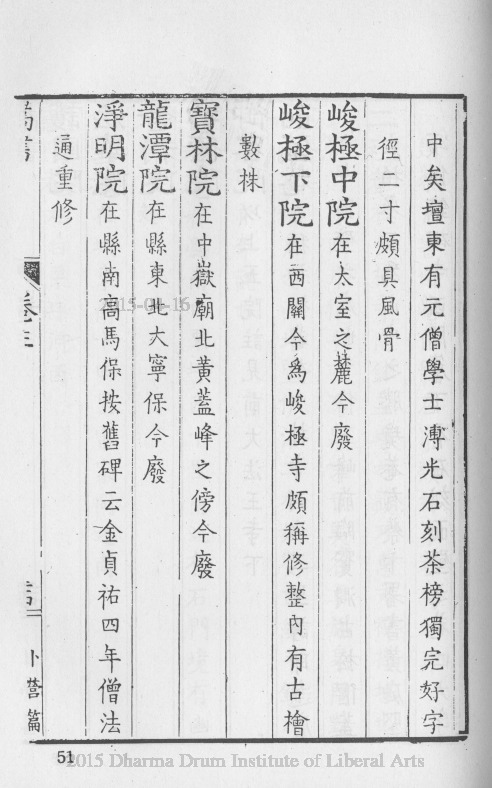 中矣壇東有元僧學士溥光石刻茶榜獨完好字
徑二寸頗具風骨
峻極中院在太室之麓今廢
峻極下院在西關今為峻極寺頗稱修整內有古檜
數株
寶林院在中嶽廟北黃蓋峰之傍今廢
龍潭院在縣東北大寧保今廢
淨明院在縣南高馬保按舊碑云金貞祐四年僧法
通重修
嵩書
卷三
卜營篇
51
2015 Dharma Drum Institute of Liberal Arts